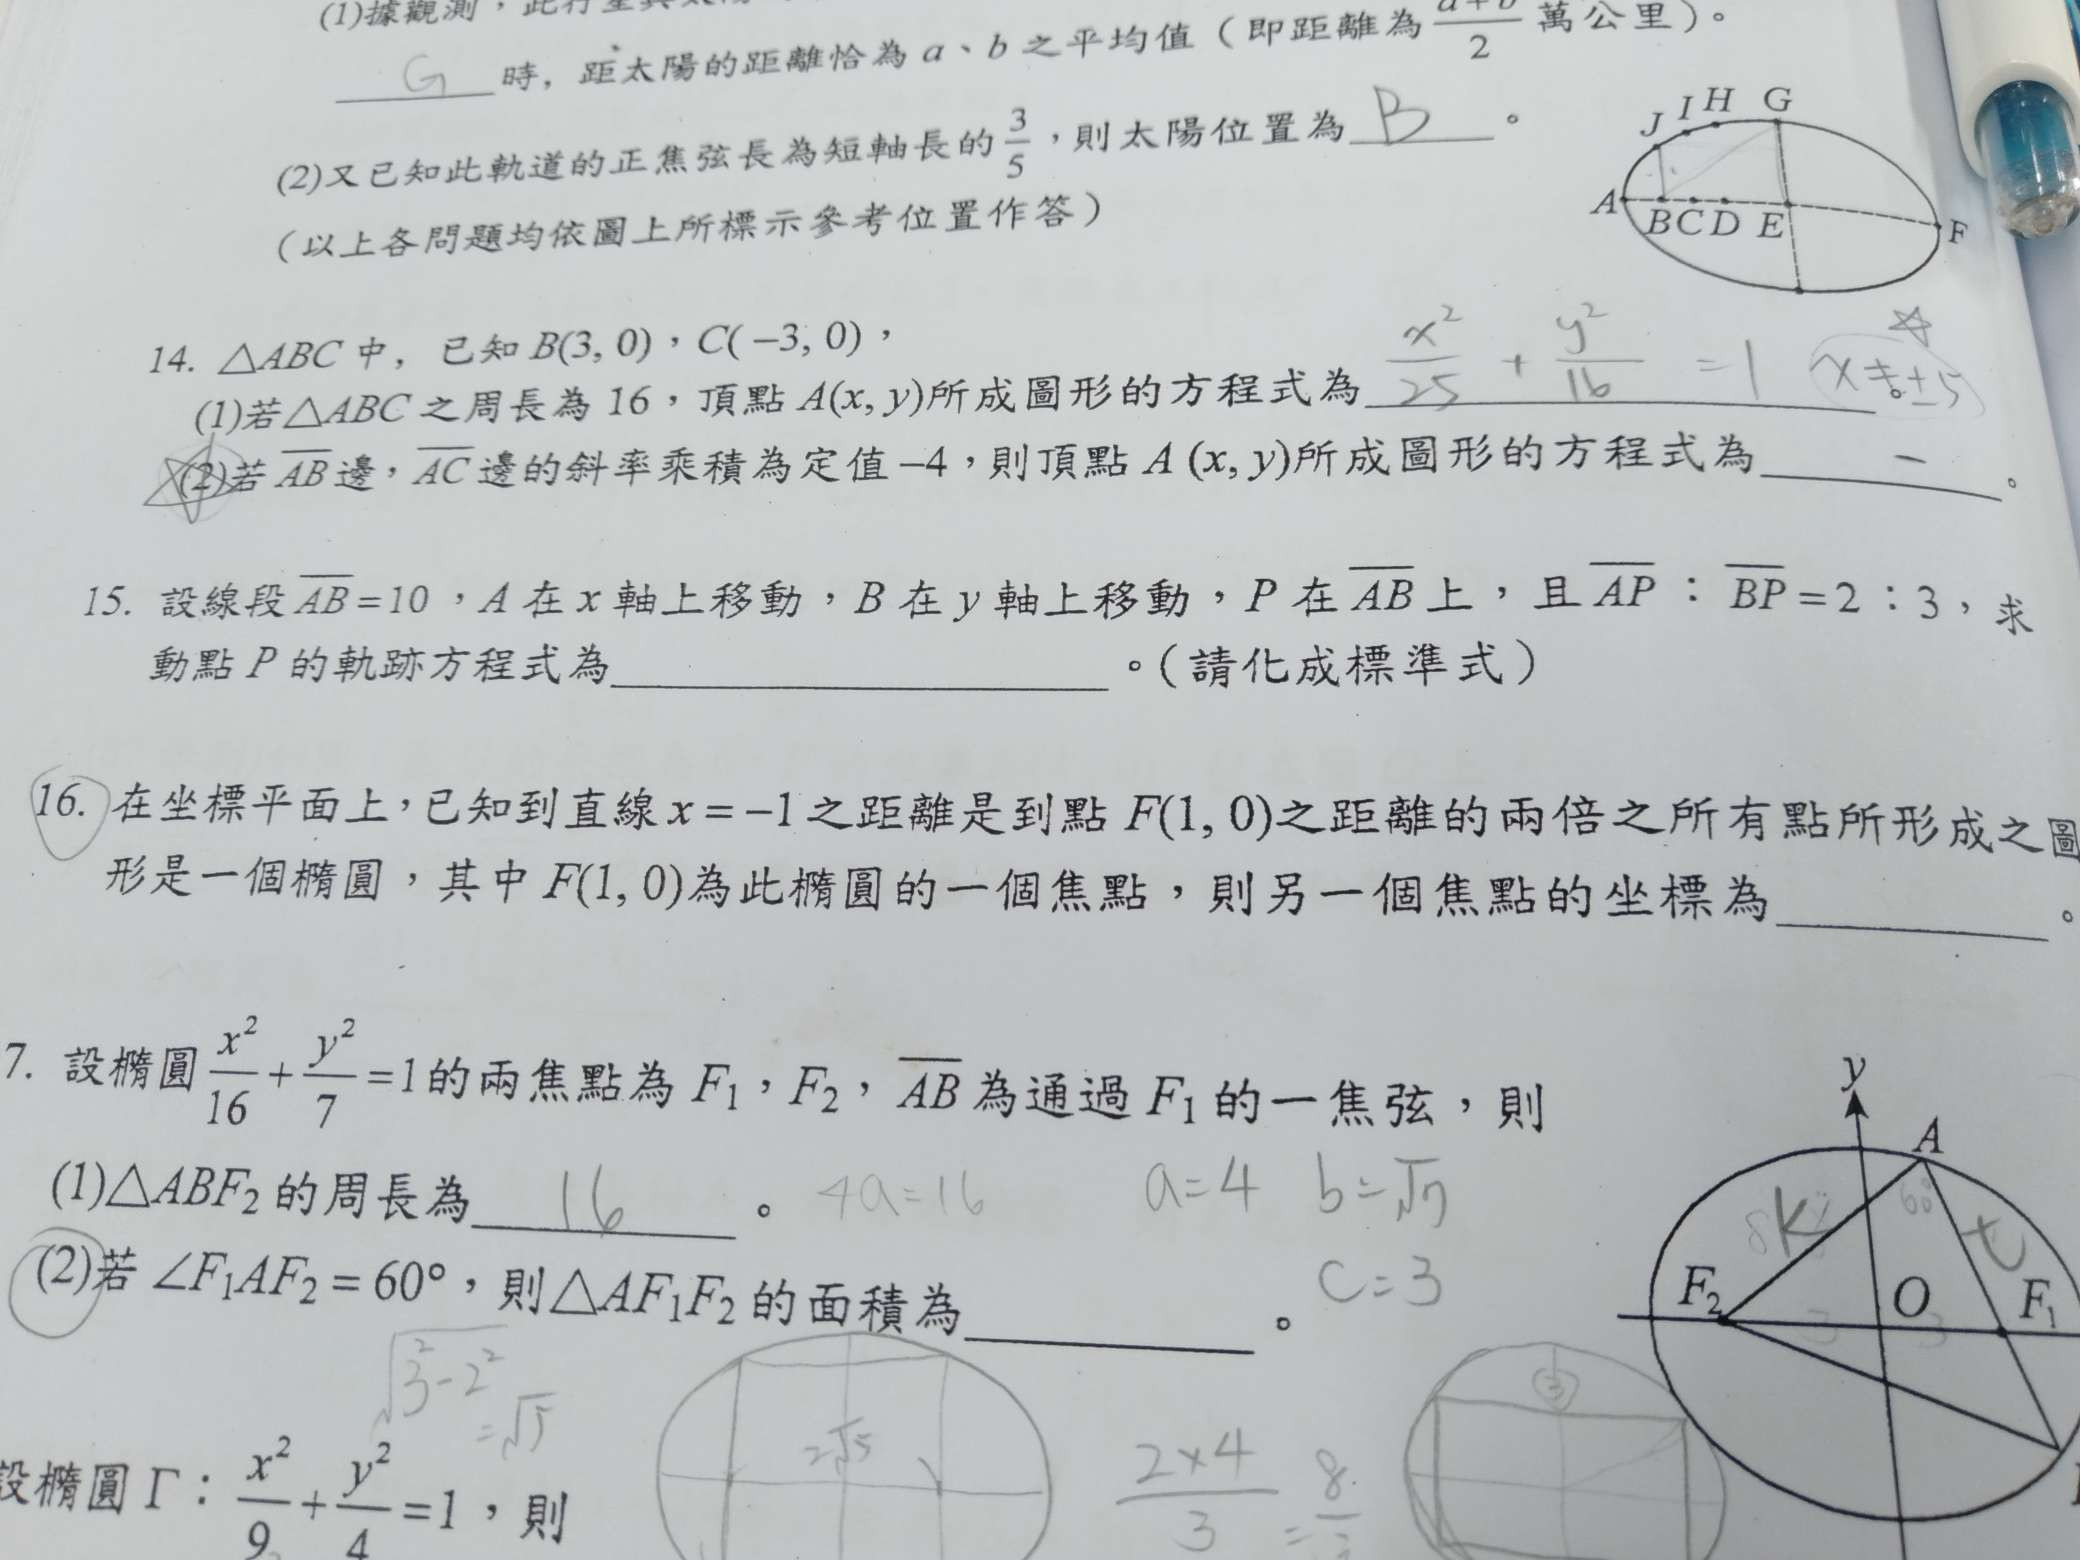 (1)據觀測，此行星與太陽
G 時，距太陽的距離恰為 a、b 之平均值（即距離為 (a+b)/2 萬公里）。
(2)又已知此軌道的正焦弦長為短軸長的 3/5，則太陽位置為 B 。
（以上各問題均依圖上所標示參考位置作答）
J I H G
A B C D E F
14. △ABC 中，已知 B(3, 0)，C(−3, 0)，
(1)若△ABC 之周長為 16，頂點 A(x, y)所成圖形的方程式為 x²/25 + y²/16 = 1 x≠±5
(2)若 AB 邊，AC 邊的斜率乘積為定值 −4，則頂點 A (x, y)所成圖形的方程式為 。
15. 設線段 AB = 10，A 在 x 軸上移動，B 在 y 軸上移動，P 在 AB 上，且 AP：BP = 2：3，求
動點 P 的軌跡方程式為 。（請化成標準式）
16. 在坐標平面上，已知到直線 x = −1 之距離是到點 F(1, 0)之距離的兩倍之所有點所形成之圖
形是一個橢圓，其中 F(1, 0)為此橢圓的一個焦點，則另一個焦點的坐標為 。
7. 設橢圓 x²/16 + y²/7 = 1 的兩焦點為 F₁，F₂，AB 為通過 F₁ 的一焦弦，則
(1)△ABF₂ 的周長為 16 。 4a=16 a=4 b=√7
(2)若 ∠F₁AF₂ = 60°，則△AF₁F₂ 的面積為 。 c=3
y
A
K 60 t
F₂ O F₁
3 3
√3²-2² =√5
2√5
2×4/3 = 8/3
設橢圓 Γ：x²/9 + y²/4 = 1，則